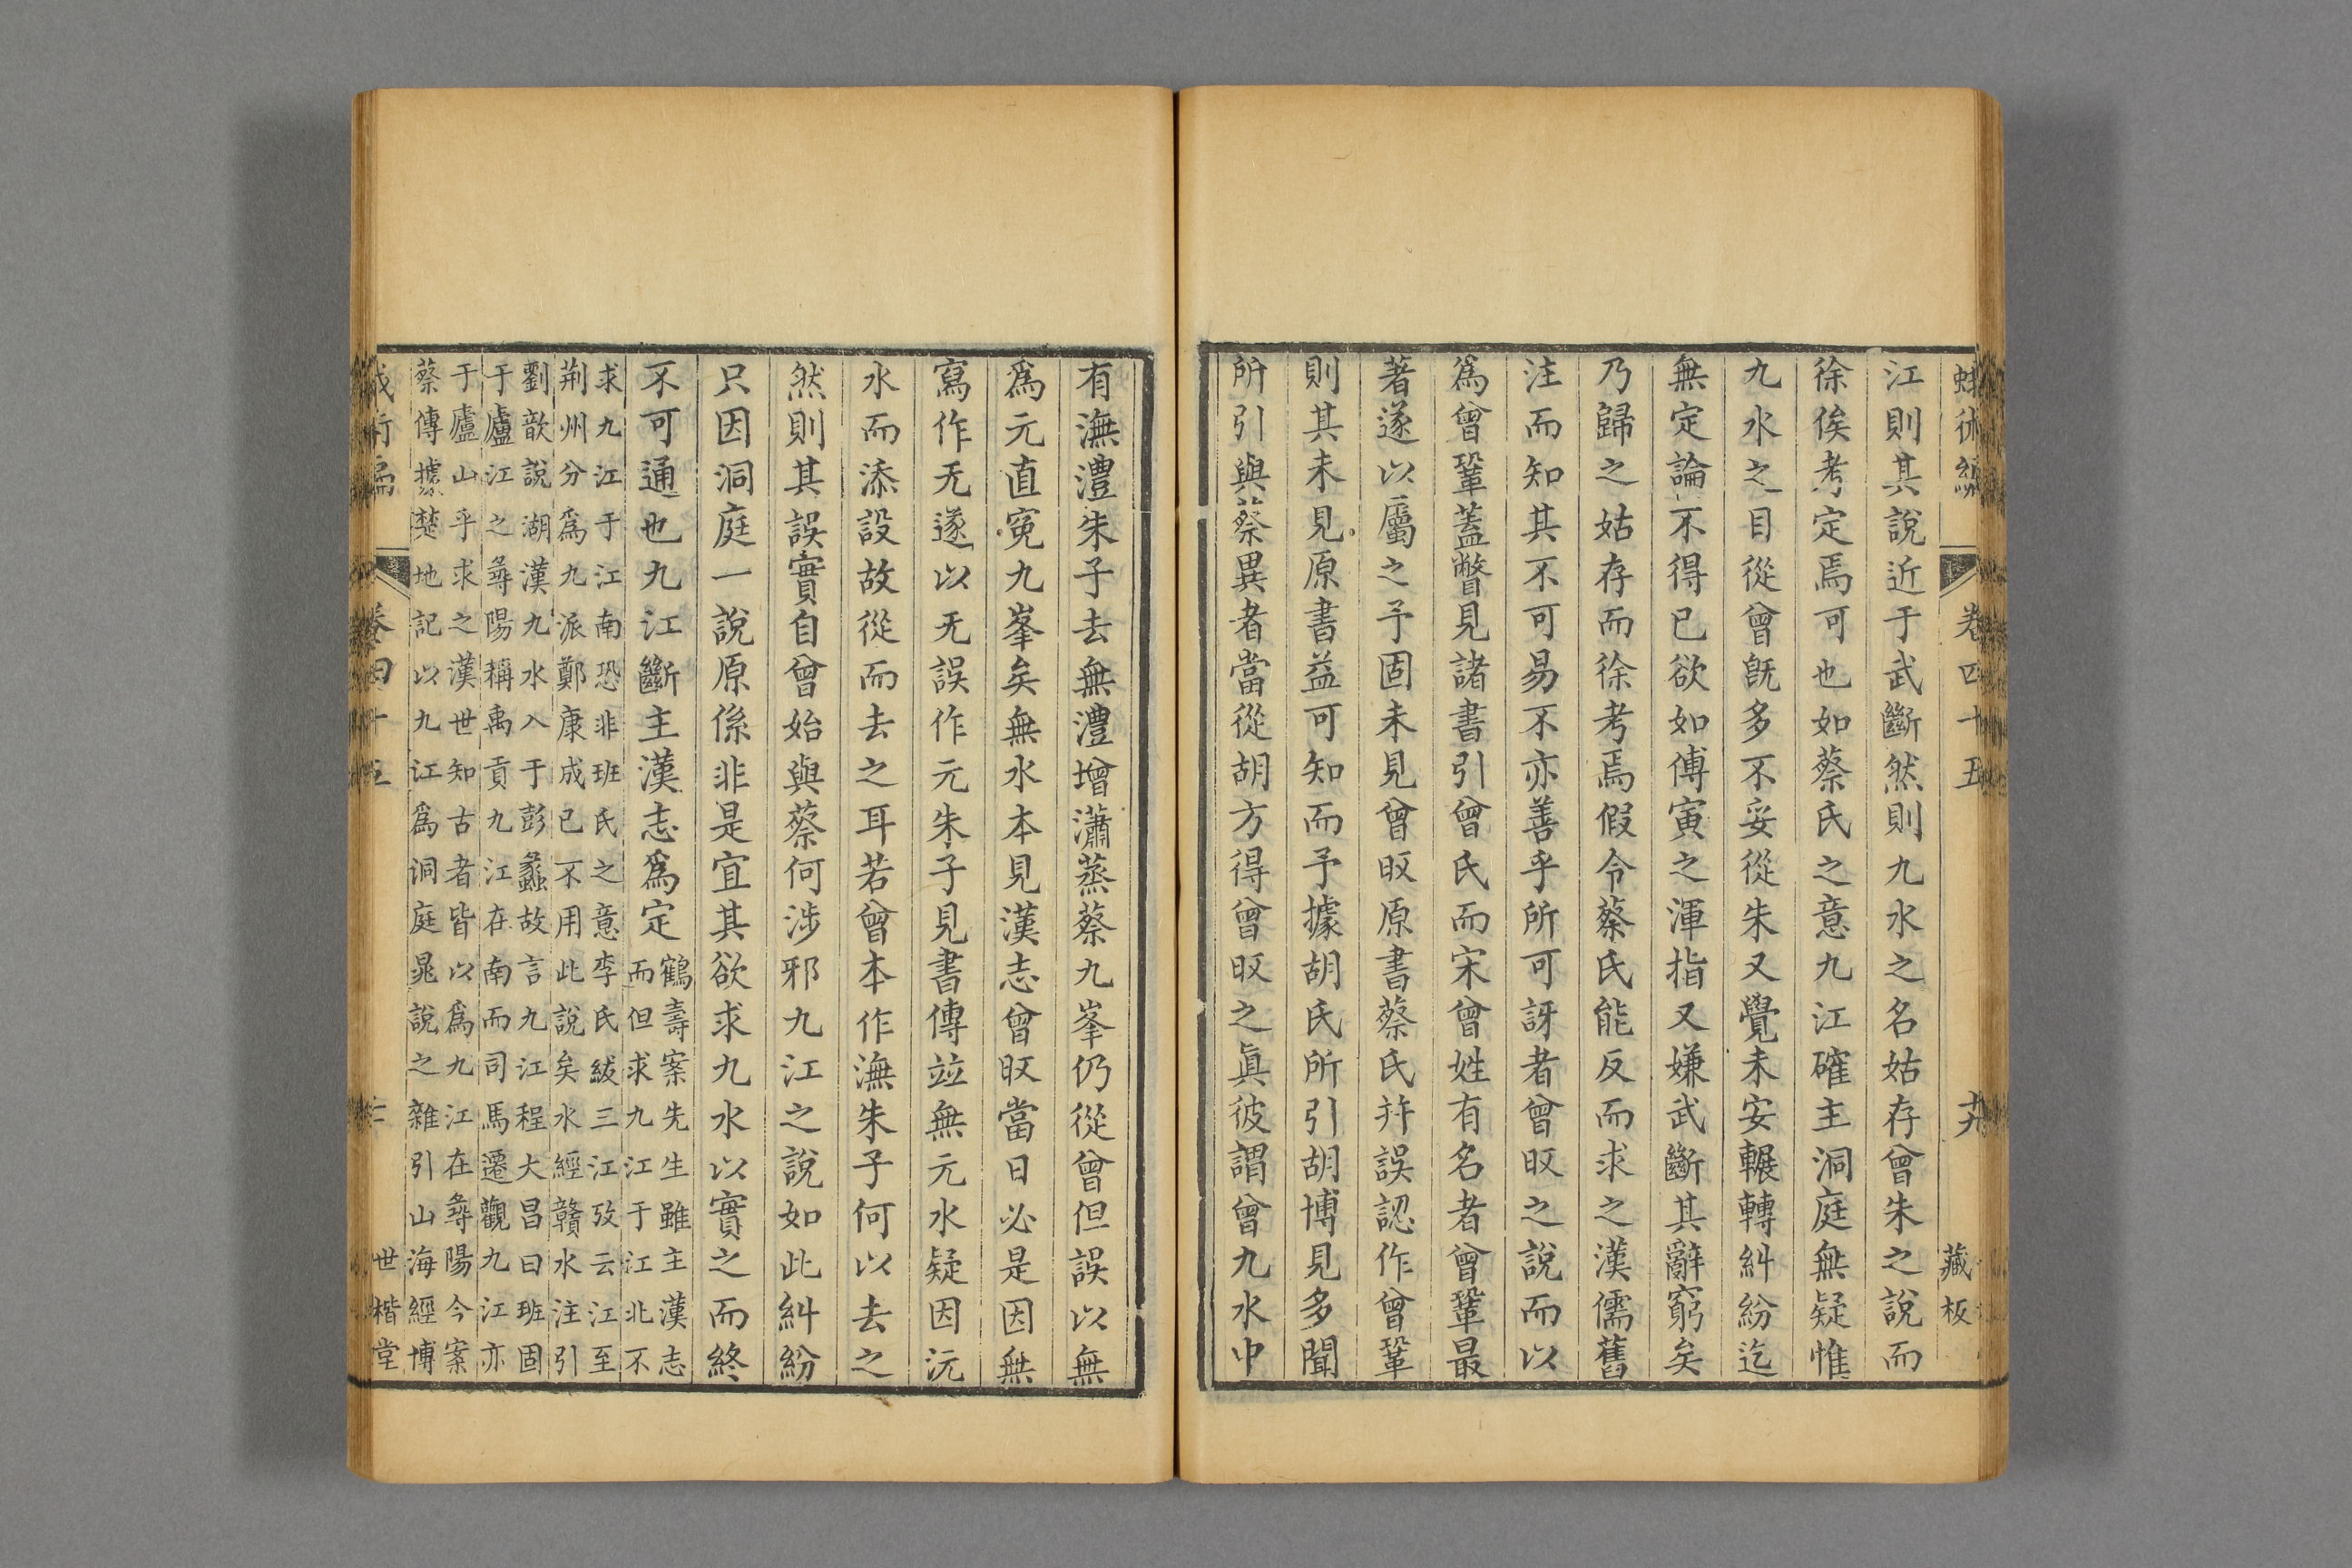 蛾術編 卷四十五 十九 藏板
江則其說近于武斷然則九水之名姑存曾朱之說而
徐俟考定焉可也如蔡氏之意九江確主洞庭無疑惟
九水之目從曾旣多不妥從朱又覺未安輾轉糾紛迄
無定論不得已欲如傅寅之渾指又嫌武斷其辭窮矣
乃歸之姑存而徐考焉假令蔡氏能反而求之漢儒舊
注而知其不可易不亦善乎所可訝者曾旼之說而以
爲曾鞏蓋瞥見諸書引曾氏而宋曾姓有名者曾鞏最
著遂以屬之予固未見曾旼原書蔡氏幷誤認作曾鞏
則其未見原書益可知而予據胡氏所引胡博見多聞
所引與蔡異者當從胡方得曾旼之眞彼謂曾九水中
有潕澧朱子去無澧增瀟蒸蔡九峯仍從曾但誤以無
爲元直寃九峯矣無水本見漢志曾旼當日必是因無
寫作无遂以无誤作元朱子見書傳竝無元水疑因沅
水而添設故從而去之耳若曾本作潕朱子何以去之
然則其誤實自曾始與蔡何涉邪九江之說如此糾紛
只因洞庭一說原係非是宜其欲求九水以實之而終
不可通也九江斷主漢志爲定
鶴壽案先生雖主漢志
而但求九江于江北不
求九江于江南恐非班氏之意李氏紱三江攷云江至
荆州分爲九派鄭康成已不用此說矣水經贛水注引
劉歆說湖漢九水入于彭蠡故言九江程大昌曰班固
于廬江之尋陽稱禹貢九江在南而司馬遷觀九江亦
于廬山乎求之漢世知古者皆以爲九江在尋陽今案
蔡傳據楚地記以九江爲洞庭晁說之雜引山海經博
蛾術編 卷四十五 世楷堂